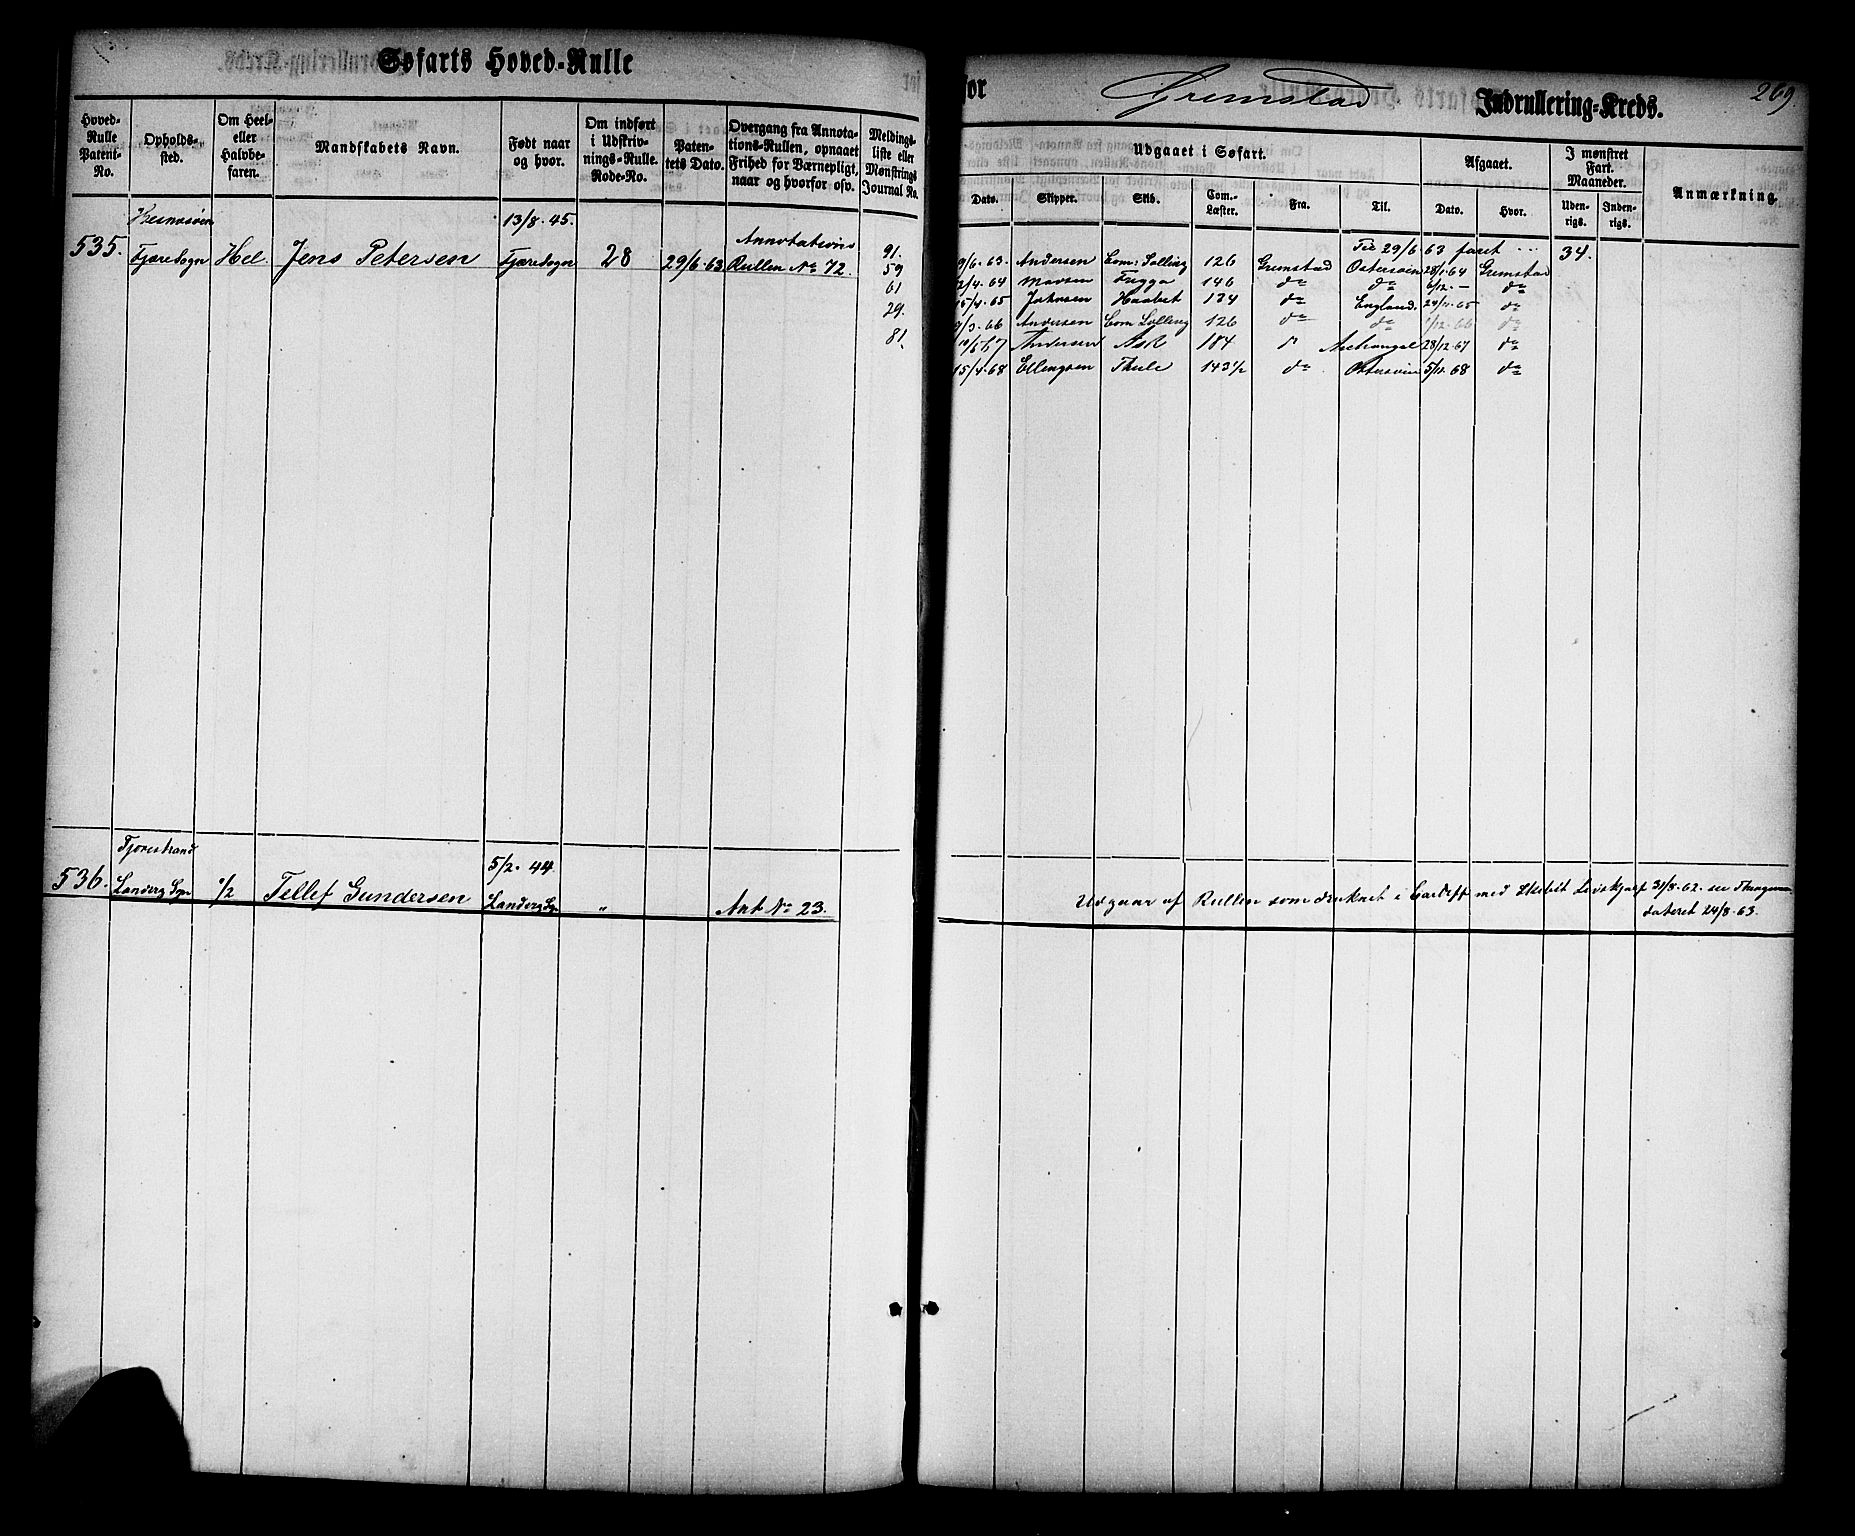 Søfarts Hoved-Rulle
for Grimstad Indrullering-Kreds. 269.
Hoved-Rulle Patent-No.
Opholds-sted.
Om Heel- eller Halvbe-faren.
Mandskabets Navn.
Født naar og hvor.
Om indført i Udskriv-nings-Rulle. Rode-No.
Paten-tets Dato.
Overgang fra Annota-tions-Rullen, opnaaet Frihed for Værnepligt, naar og hvorfor osv.
Meldings-liste eller Mønstrings Journal No.
Udgaaet i Søfart.
Dato. Skipper. Skib. Com.-Læster. Fra. Til.
Afgaaet.
Dato. Hvor.
I mønstret Fart. Maaneder.
Uden-rigs. Inden-rigs.
Anmærkning.
13/8. 45.
535. Fjæresogn Hel. Jens Petersen Fjæresogn 28 29/6 63 Annotations Rullen No 72
91.
59
61
29.
81.
Til 29/6 63 faret 34.
9/6. 63. Andersen Com: Solling 126 Grimstad Østersøen 28/1 64 Grimstad
2/4. 64 Frigga 146 do do 6/12 – do
15/4. 65 Haabet 134 do England. 24/11. 65 do
9/3. 66 Andersen Com Solling 126 do do 1/12. 66 do
Andersen Ask 184 Archangel 28/12. 67 do
15/4. 68 Ellingsen Thule 143½ do Østersøen 5/11. 68 do
5/2. 44.
536. Landvig Sgn ½ Tellef Gundersen Landvig Sgn „ Ant No 23.
Udgaar af Rullen som druknet i Cardiff med 31/8. 62. se
dateret 24/8. 63.